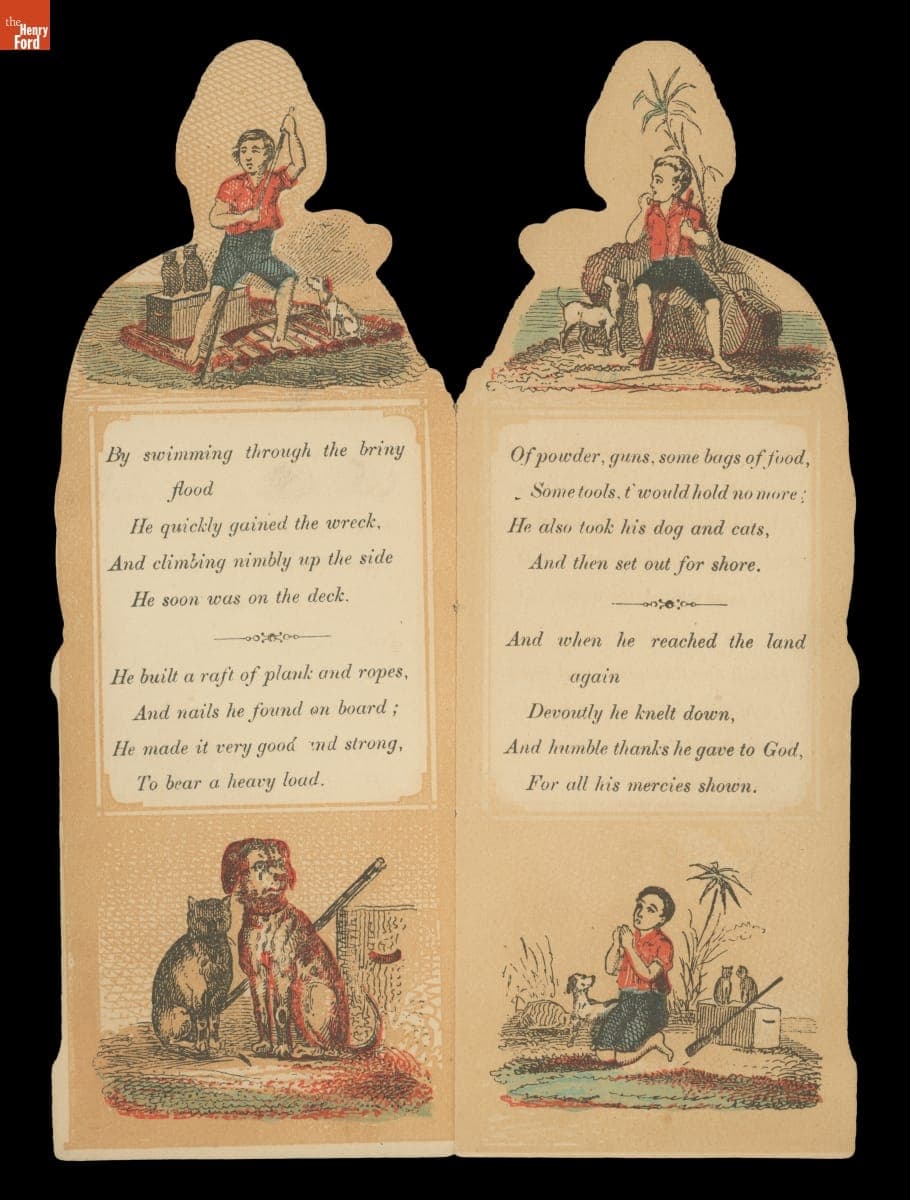 the
Henry
Ford
By swimming through the briny
flood
He quickly gained the wreck,
And climbing nimbly up the side
He soon was on the deck.
He built a raft of plank and ropes,
And nails he found on board ;
He made it very good and strong,
To bear a heavy load.
Of powder, guns, some bags of food,
Some tools, t'would hold no more ;
He also took his dog and cats,
And then set out for shore.
And when he reached the land
again
Devoutly he knelt down,
And humble thanks he gave to God,
For all his mercies shown.